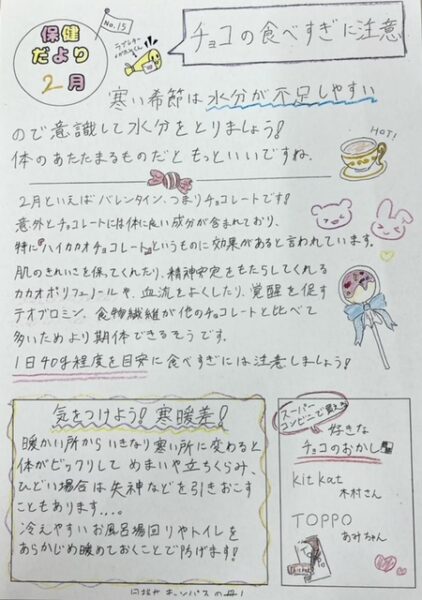 保健
だより
2月
No.15
チョコの食べすぎに注意
寒い希節は水分が不足しやすい
ので意識して水分をとりましょう!
体のあたたまるものだと もっといいですね.
HOT!
2月といえばバレンタイン、つまりチョコレートです!
意外とチョコレートには体に良い成分が含まれており、
特に『ハイカカオチョコレート』というものに効果があると言われています。
肌のきれいさを保ってくれたり、精神安定をもたらしてくれる
カカオポリフェノールや、血流をよくしたり、覚醒を促す
テオブロミン、食物繊維が他のチョコレートと比べて
多いためより期体できるそうです.
1日40g程度を目安に食べすぎには注意しましょう!
気をつけよう!寒暖差!
暖かい所からいきなり寒い所に変わると
体がビックリして めまいや立ちくらみ、
ひどい場合は失神などを引きおこす
こともあります...。
冷えやすいお風呂場回りやトイレを
あらかじめ暖めておくことで防げます!
スーパー
コンビニで買える
好きな
チョコのおかし
kitkat
木村さん
TOPPO
あみちゃん